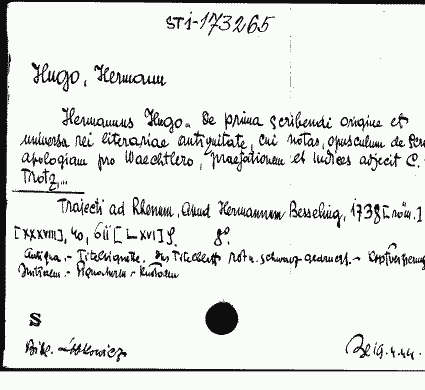 STI-173265
Hugo, Hermann
Hermannus Hugo. De prima scribendi origine et
universa rei literariae antiquitate, cui notas, opusculum de Scri
apologiam pro Waechtlero, praefationem et indices adjecit C.
Trotz,..
Trajecti ad Rhenum, Apud Hermannum Besseling, 1738 [röm.]
[XXXVIII], 40, 611 [LXVI] S. 8°.
Antiqua. - Titelvignette. Titelblatt rot u. schwarz gedruckt. -
Initialen. - Signaturen. - Kustoden
S
Bibl.